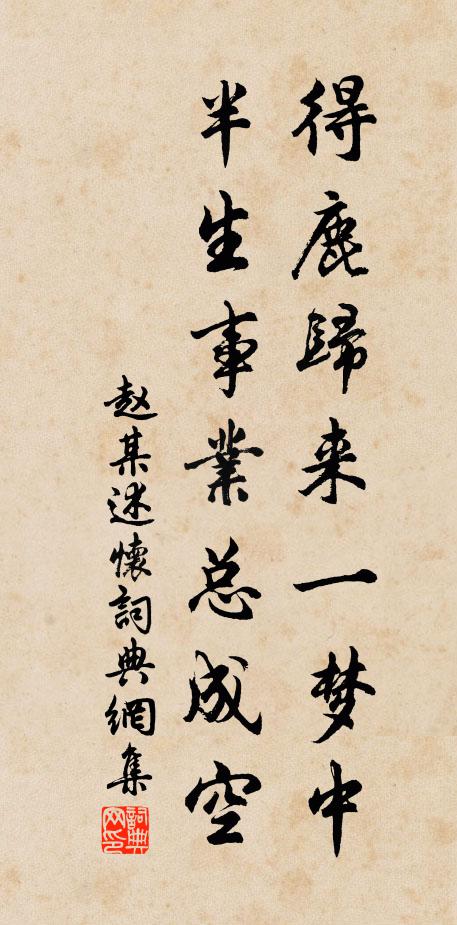 得鹿歸来一梦中
半生事業总成空
赵某述懷詞典網集
詞典网印